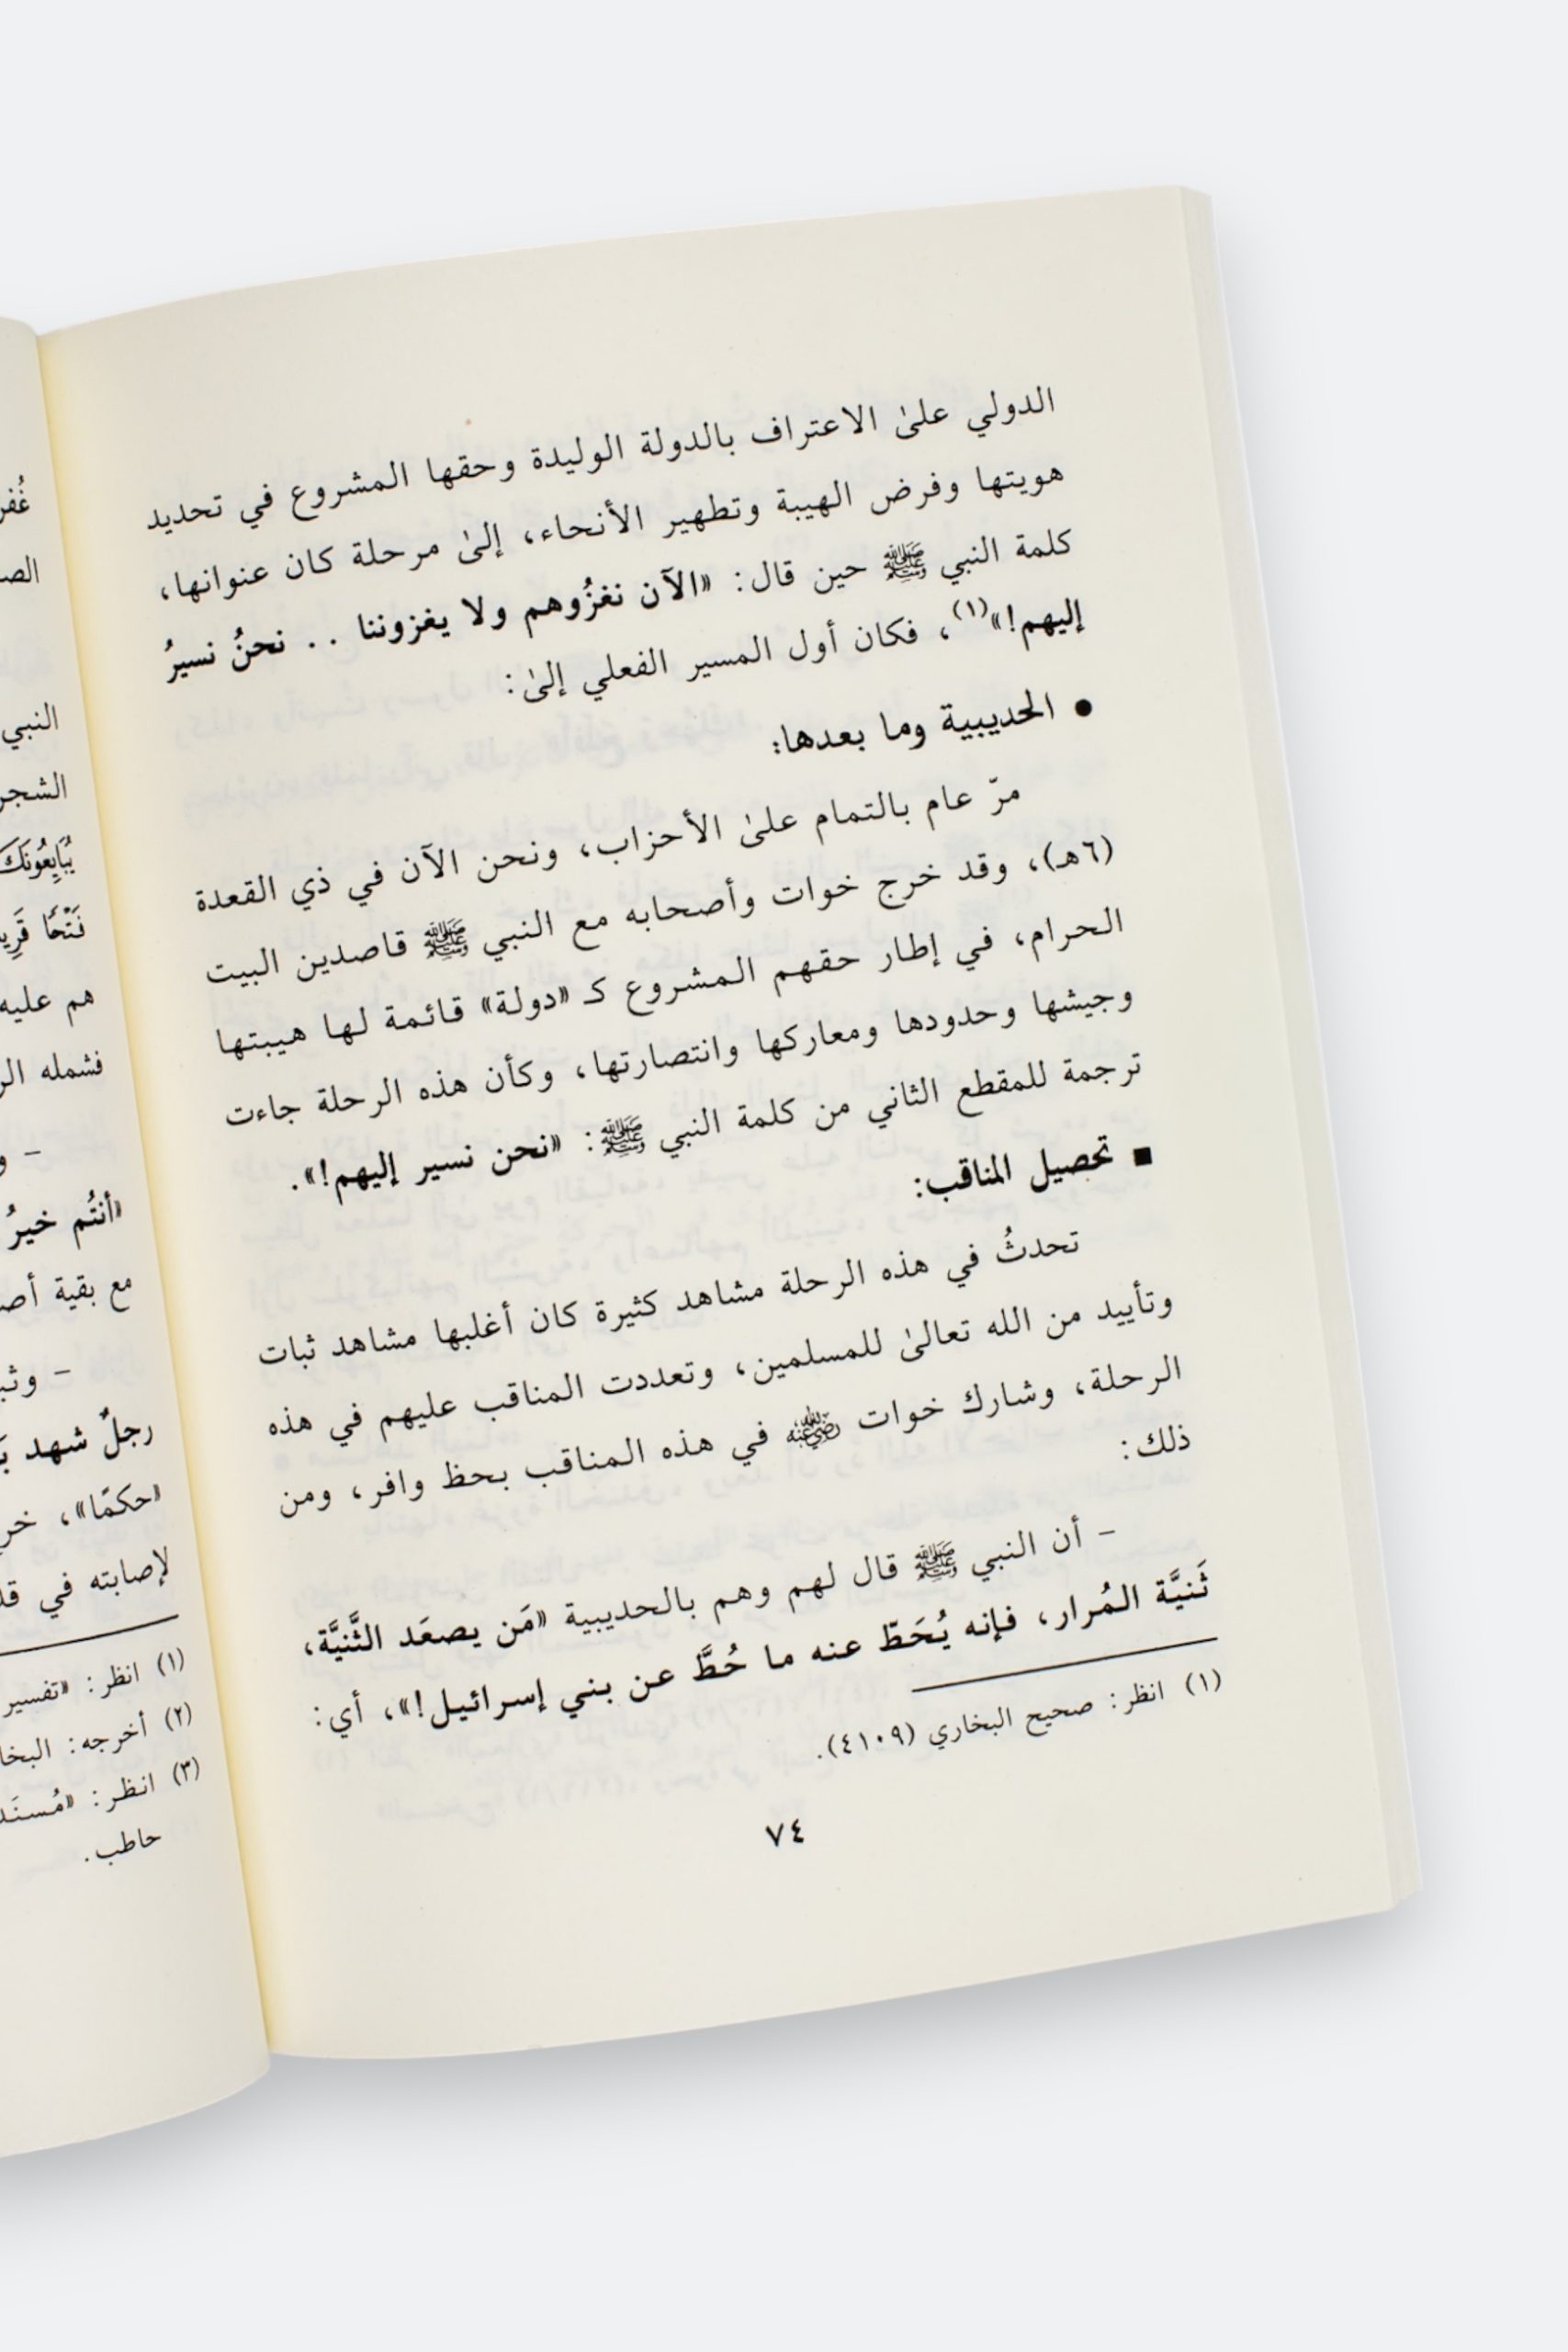 الدولي علىٰ الاعتراف بالدولة الوليدة وحقها المشروع في تحديد
هويتها وفرض الهيبة وتطهير الأنحاء، إلىٰ مرحلة كان عنوانها،
كلمة النبي ﷺ حين قال: «الآن نغزُوهم ولا يغزوننا .. نحنُ نسيرُ
إليهم!»(١)، فكان أول المسير الفعلي إلىٰ:
● الحديبية وما بعدها:
مرّ عام بالتمام علىٰ الأحزاب، ونحن الآن في ذي القعدة
(٦هـ)، وقد خرج خوات وأصحابه مع النبي ﷺ قاصدين البيت
الحرام، في إطار حقهم المشروع كـ «دولة» قائمة لها هيبتها
وجيشها وحدودها ومعاركها وانتصارتها، وكأن هذه الرحلة جاءت
ترجمة للمقطع الثاني من كلمة النبي ﷺ: «نحن نسير إليهم!».
■ تحصيل المناقب:
تحدثُ في هذه الرحلة مشاهد كثيرة كان أغلبها مشاهد ثبات
وتأييد من الله تعالىٰ للمسلمين، وتعددت المناقب عليهم في هذه
الرحلة، وشارك خوات رضي الله عنه في هذه المناقب بحظ وافر، ومن
ذلك:
- أن النبي ﷺ قال لهم وهم بالحديبية «مَن يصعَد الثَّنيَّة،
ثَنيَّة المُرار، فإنه يُحَطّ عنه ما حُطَّ عن بني إسرائيل!»، أي:
(١) انظر: صحيح البخاري (٤١٠٩).
٧٤
النبي
يُبَايِعُونَكَ
هم عليه
فشمله
- و
«أنتُم خيرُ
مع بقية
-
رجلٌ شهد
«حكمًا»،
لإصابته في
(١) انظر: «تفسير
(٢) أخرجه:
(٣) انظر:
حاطب.